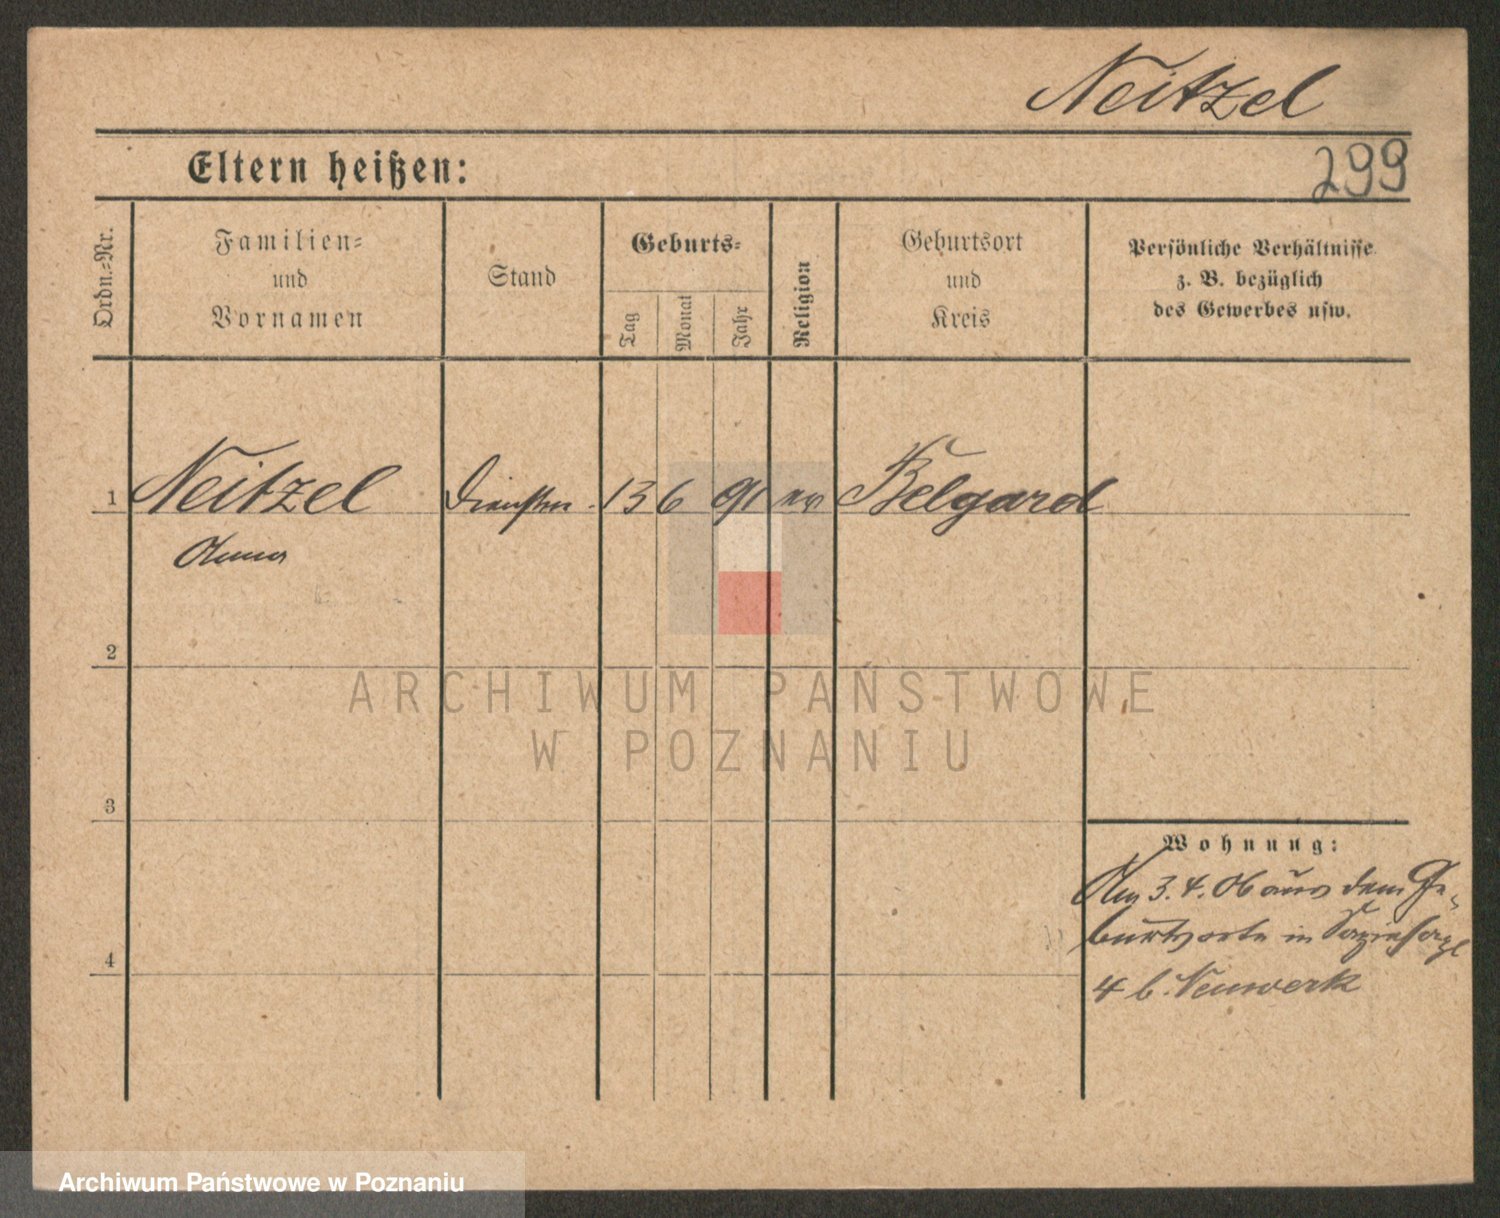 Neitzel
Eltern heißen:
299
Ordn.=Nr.
Familien=
und
Vornamen
Stand
Geburts=
Tag
Monat
Jahr
Religion
Geburtsort
und
Kreis
Persönliche Verhältnisse
z. B. bezüglich
des Gewerbes usw.
1 Neitzel 13 6 91 ev Belgard
Anna
2
3
4
Wohnung:
Am 3.4.06 aus dem Ge-
burtsorte in
4 b. Neuwerk
ARCHIWUM PAŃSTWOWE
W POZNANIU
Archiwum Państwowe w Poznaniu